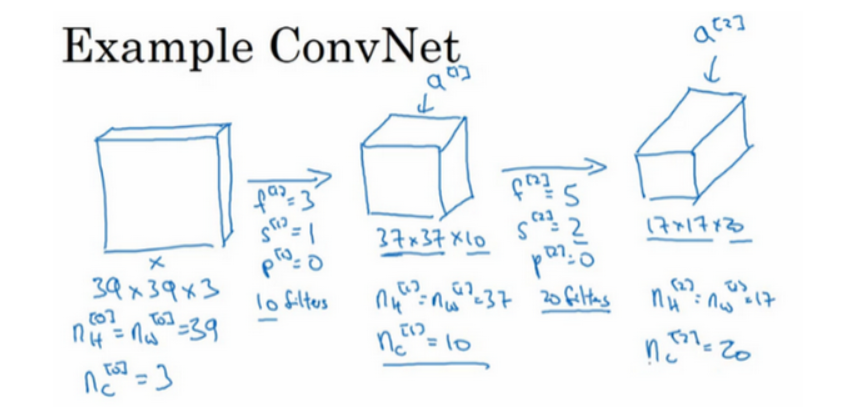 Example ConvNet
a^[1]
a^[2]
x
39×39×3
n_H^[0] = n_W^[0] = 39
n_C^[0] = 3
f^[1] = 3
s^[1] = 1
p^[1] = 0
10 filters
37×37×10
n_H^[1] = n_W^[1] = 37
n_C^[1] = 10
f^[2] = 5
s^[2] = 2
p^[2] = 0
20 filters
17×17×20
n_H^[2] = n_W^[2] = 17
n_C^[2] = 20